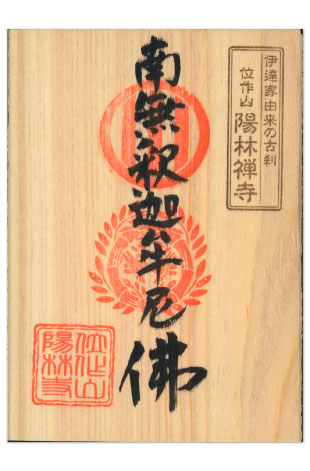 伊達家由来の古刹
位作山
陽林禅寺
南無釈迦牟尼佛
位作山
陽林寺